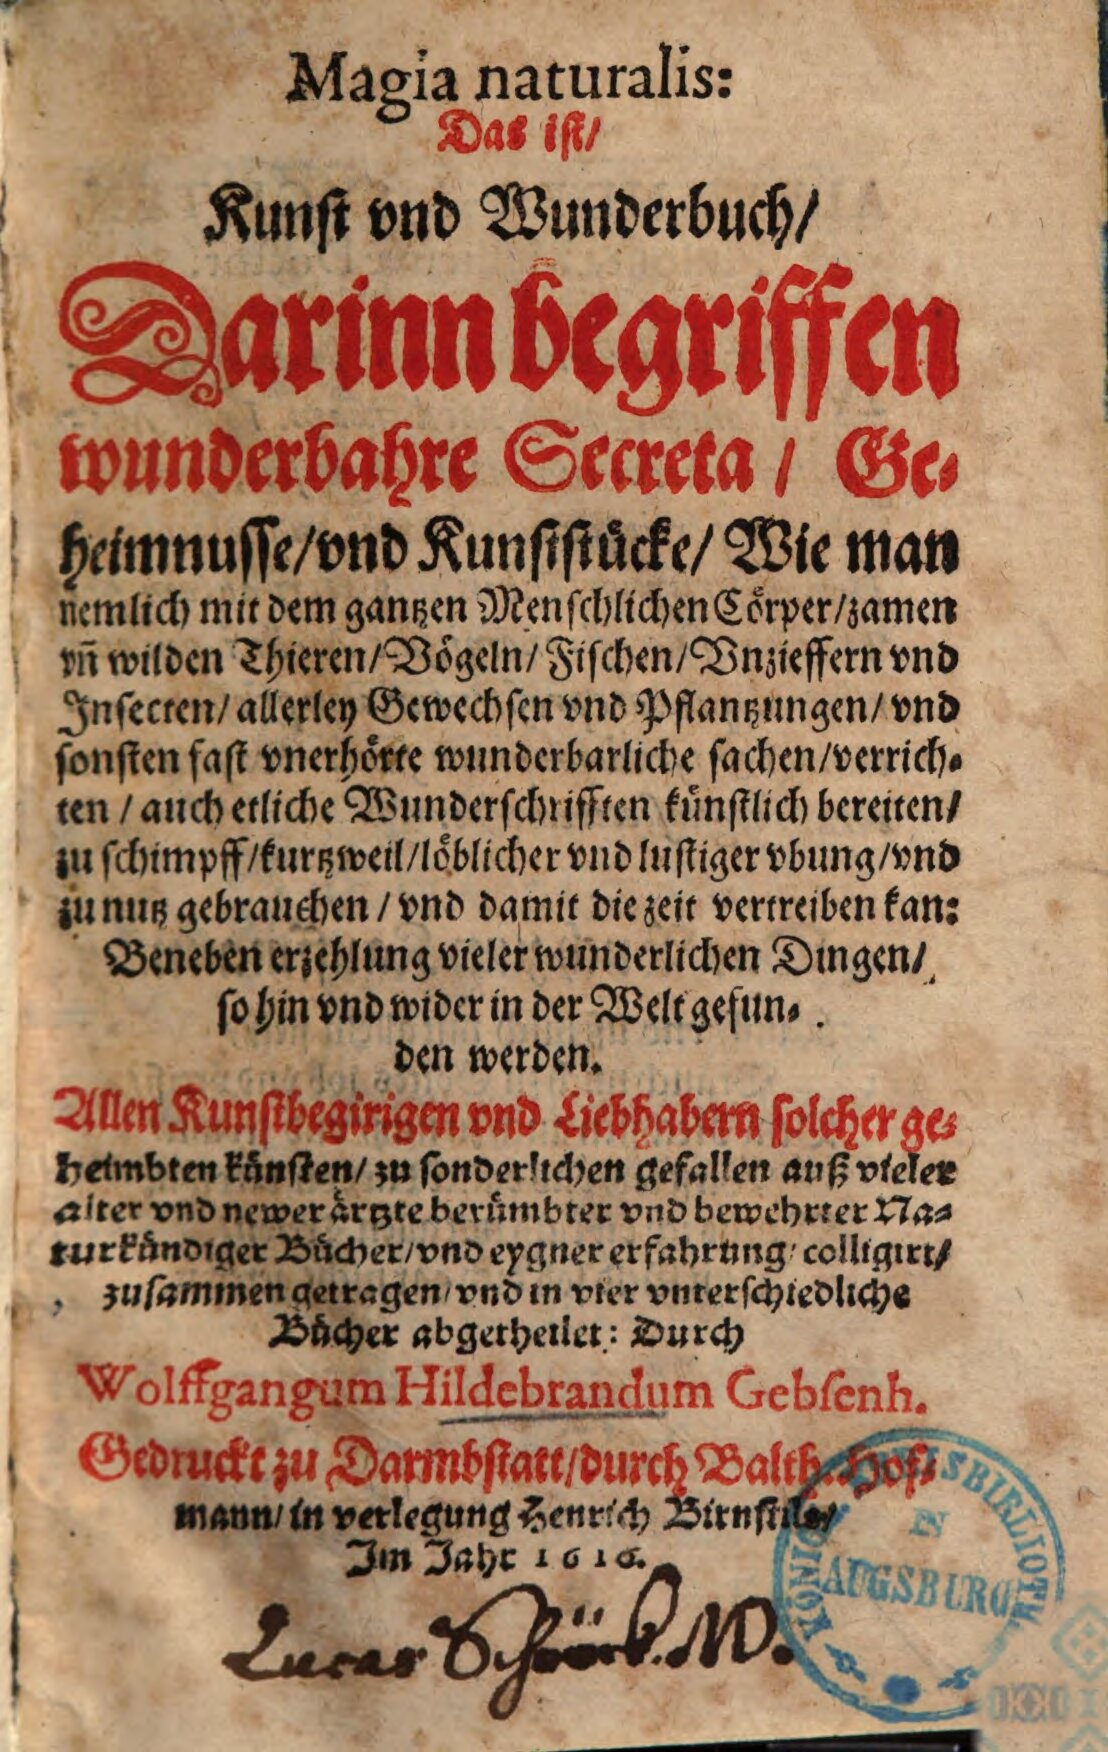 Magia naturalis:
Das ist/
Kunst vnd Wunderbuch/
Darinn begriffen
wunderbahre Secreta / Ge-
heimnusse/vnd Kunststuͤcke/ Wie man
nemlich mit dem gantzen Menschlichen Coͤrper/zamen
vñ wilden Thieren/Voͤgeln/ Fischen/ Vnzieffern vnd
Insecten/ allerley Gewechsen vnd Pflantzungen/ vnd
sonsten fast vnerhoͤrte wunderbarliche sachen/verrich-
ten / auch etliche Wunderschrifften kuͤnstlich bereiten/
zu schimpff/kurtzweil/loͤblicher vnd lustiger vbung/vnd
zu nutz gebrauchen / vnd damit die zeit vertreiben kan:
Beneben erzehlung vieler wunderlichen Dingen/
so hin vnd wider in der Welt gefun-
den werden.
Allen Kunstbegirigen vnd Liebhabern solcher ge-
heimbten kuͤnsten/ zu sonderlichen gefallen auß vieler
alter vnd newer aͤrtzte beruͤmbter vnd bewehrter Na-
turkuͤndiger Buͤcher/vnd eygner erfahrung/ colligirt/
zusammen getragen/ vnd in vier vnterschiedliche
Buͤcher abgetheilet: Durch
Wolffgangum Hildebrandum Gebsenh.
Gedruckt zu Darmbstatt/durch Balth. Hof-
mann/ in verlegung Henrich Birnstils/
Im Jahr 1616.
Lucas Schröck. M D.
IN
AUGSBURG